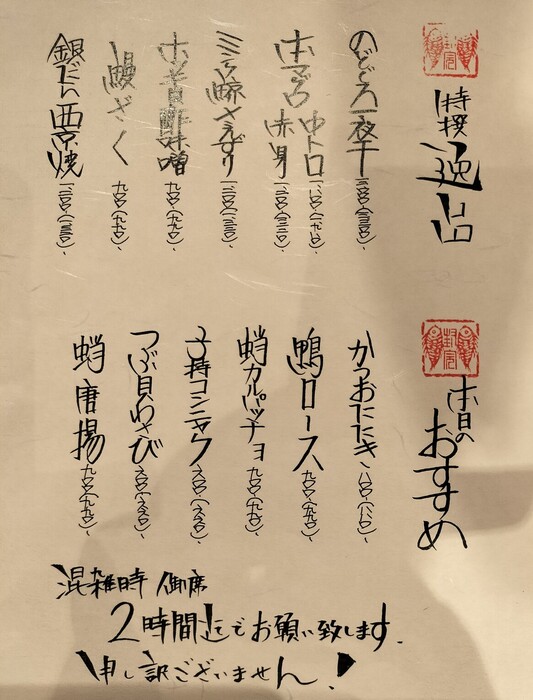 特撰逸品
のどぐろ一夜干
本マグロ 中トロ 一八〇〇(一九八〇)、
赤身 一二〇〇(一三二〇)、
さえずり 一二〇〇(一三二〇)、
酢味噌 九〇〇(九九〇)、
鰻ざく 九〇〇(九九〇)、
銀だら西京焼 一二〇〇(一三二〇)、
本日のおすすめ
かつおたたき 八〇〇(八八〇)、
鴨ロース 九〇〇(九九〇)、
蛸カルパッチョ 九〇〇(九九〇)、
子持コンニャク 六〇〇(六六〇)、
つぶ貝わさび 六〇〇(六六〇)、
蛸唐揚 九〇〇(九九〇)、
混雑時 御席
2時間迄でお願い致します.
申し訳ございません!